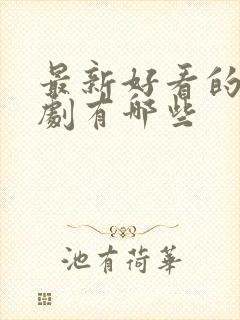 最新好看的
劇有哪些
池有荷華